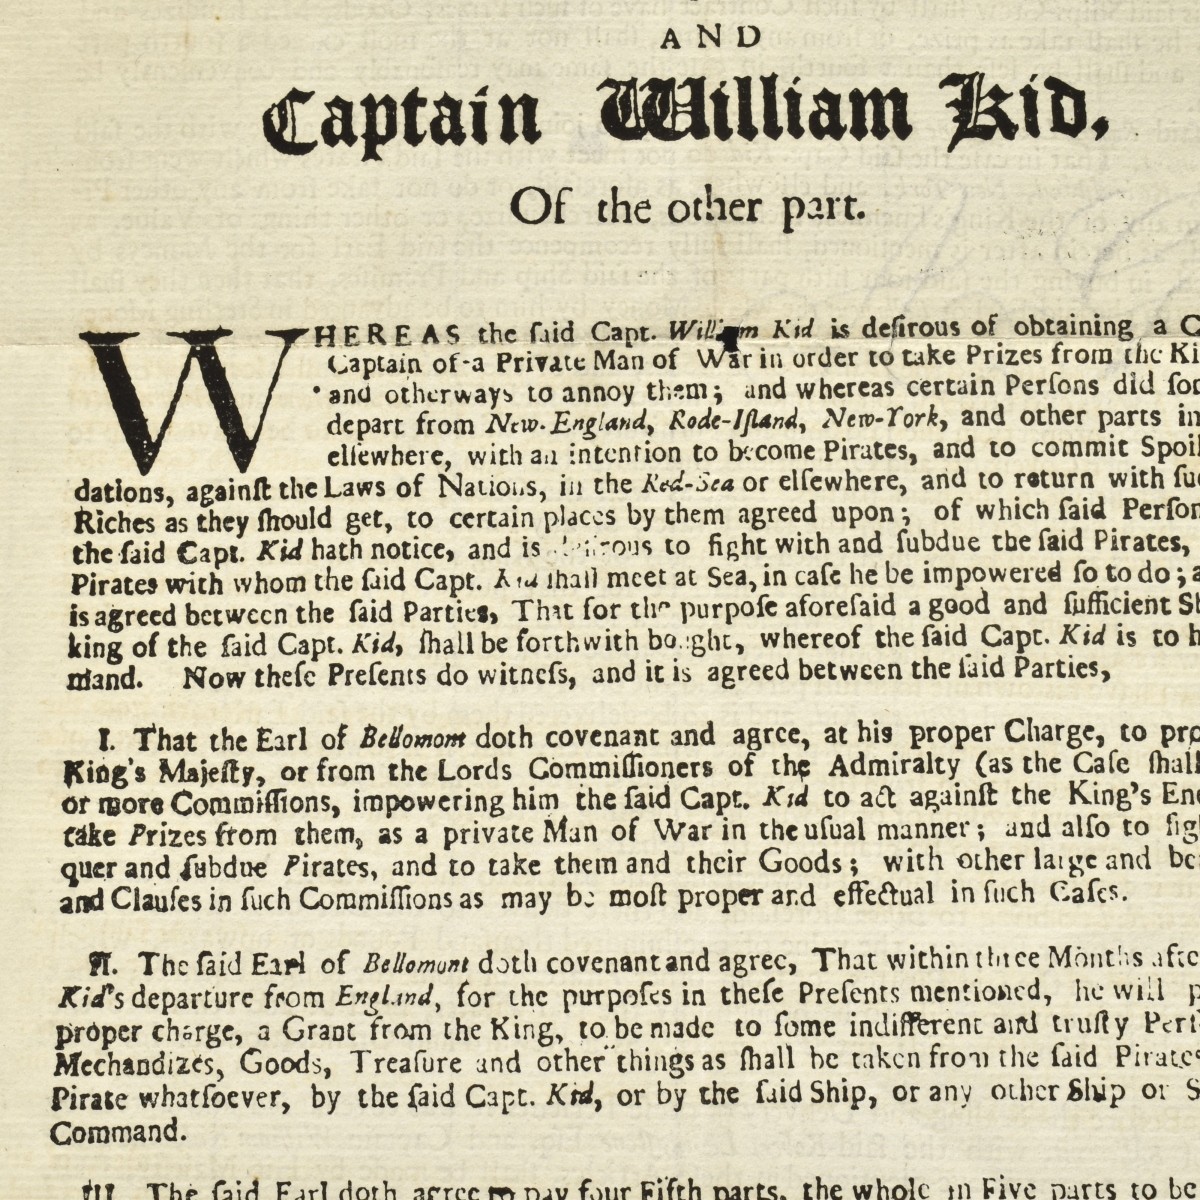 AND
Captain William Kid,
Of the other part.
WHEREAS the ſaid Capt. William Kid is deſirous of obtaining a C
Captain of a Private Man of War in order to take Prizes from the Ki
and otherways to annoy them; and whereas certain Perſons did ſo
depart from New-England, Rode-Iſland, New-York, and other parts in
elſewhere, with an intention to become Pirates, and to commit Spoil
dations, againſt the Laws of Nations, in the Red-Sea or elſewhere, and to return with ſu
Riches as they ſhould get, to certain places by them agreed upon; of which ſaid Perſon
the ſaid Capt. Kid hath notice, and is deſirous to fight with and ſubdue the ſaid Pirates,
Pirates with whom the ſaid Capt. Kid ſhall meet at Sea, in caſe he be impowered ſo to do; a
is agreed between the ſaid Parties, That for the purpoſe aforeſaid a good and ſufficient Sh
king of the ſaid Capt. Kid, ſhall be forthwith bought, whereof the ſaid Capt. Kid is to h
mand. Now theſe Preſents do witneſs, and it is agreed between the ſaid Parties,
I. That the Earl of Bellomont doth covenant and agree, at his proper Charge, to pro
King's Majeſty, or from the Lords Commiſſioners of the Admiralty (as the Caſe ſhall
or more Commiſſions, impowering him the ſaid Capt. Kid to act againſt the King's Ene
take Prizes from them, as a private Man of War in the uſual manner; and alſo to figh
quer and ſubdue Pirates, and to take them and their Goods; with other large and be
and Clauſes in ſuch Commiſſions as may be moſt proper and effectual in ſuch Caſes.
II. The ſaid Earl of Bellomont doth covenant and agree, That within three Months afte
Kid's departure from England, for the purpoſes in theſe Preſents mentioned, he will p
proper charge, a Grant from the King, to be made to ſome indifferent and truſty Perſ
Mechandizes, Goods, Treaſure and other things as ſhall be taken from the ſaid Pirates
Pirate whatſoever, by the ſaid Capt. Kid, or by the ſaid Ship, or any other Ship or S
Command.
III. The ſaid Earl doth agree to pay four Fifth parts, the whole in Five parts to be